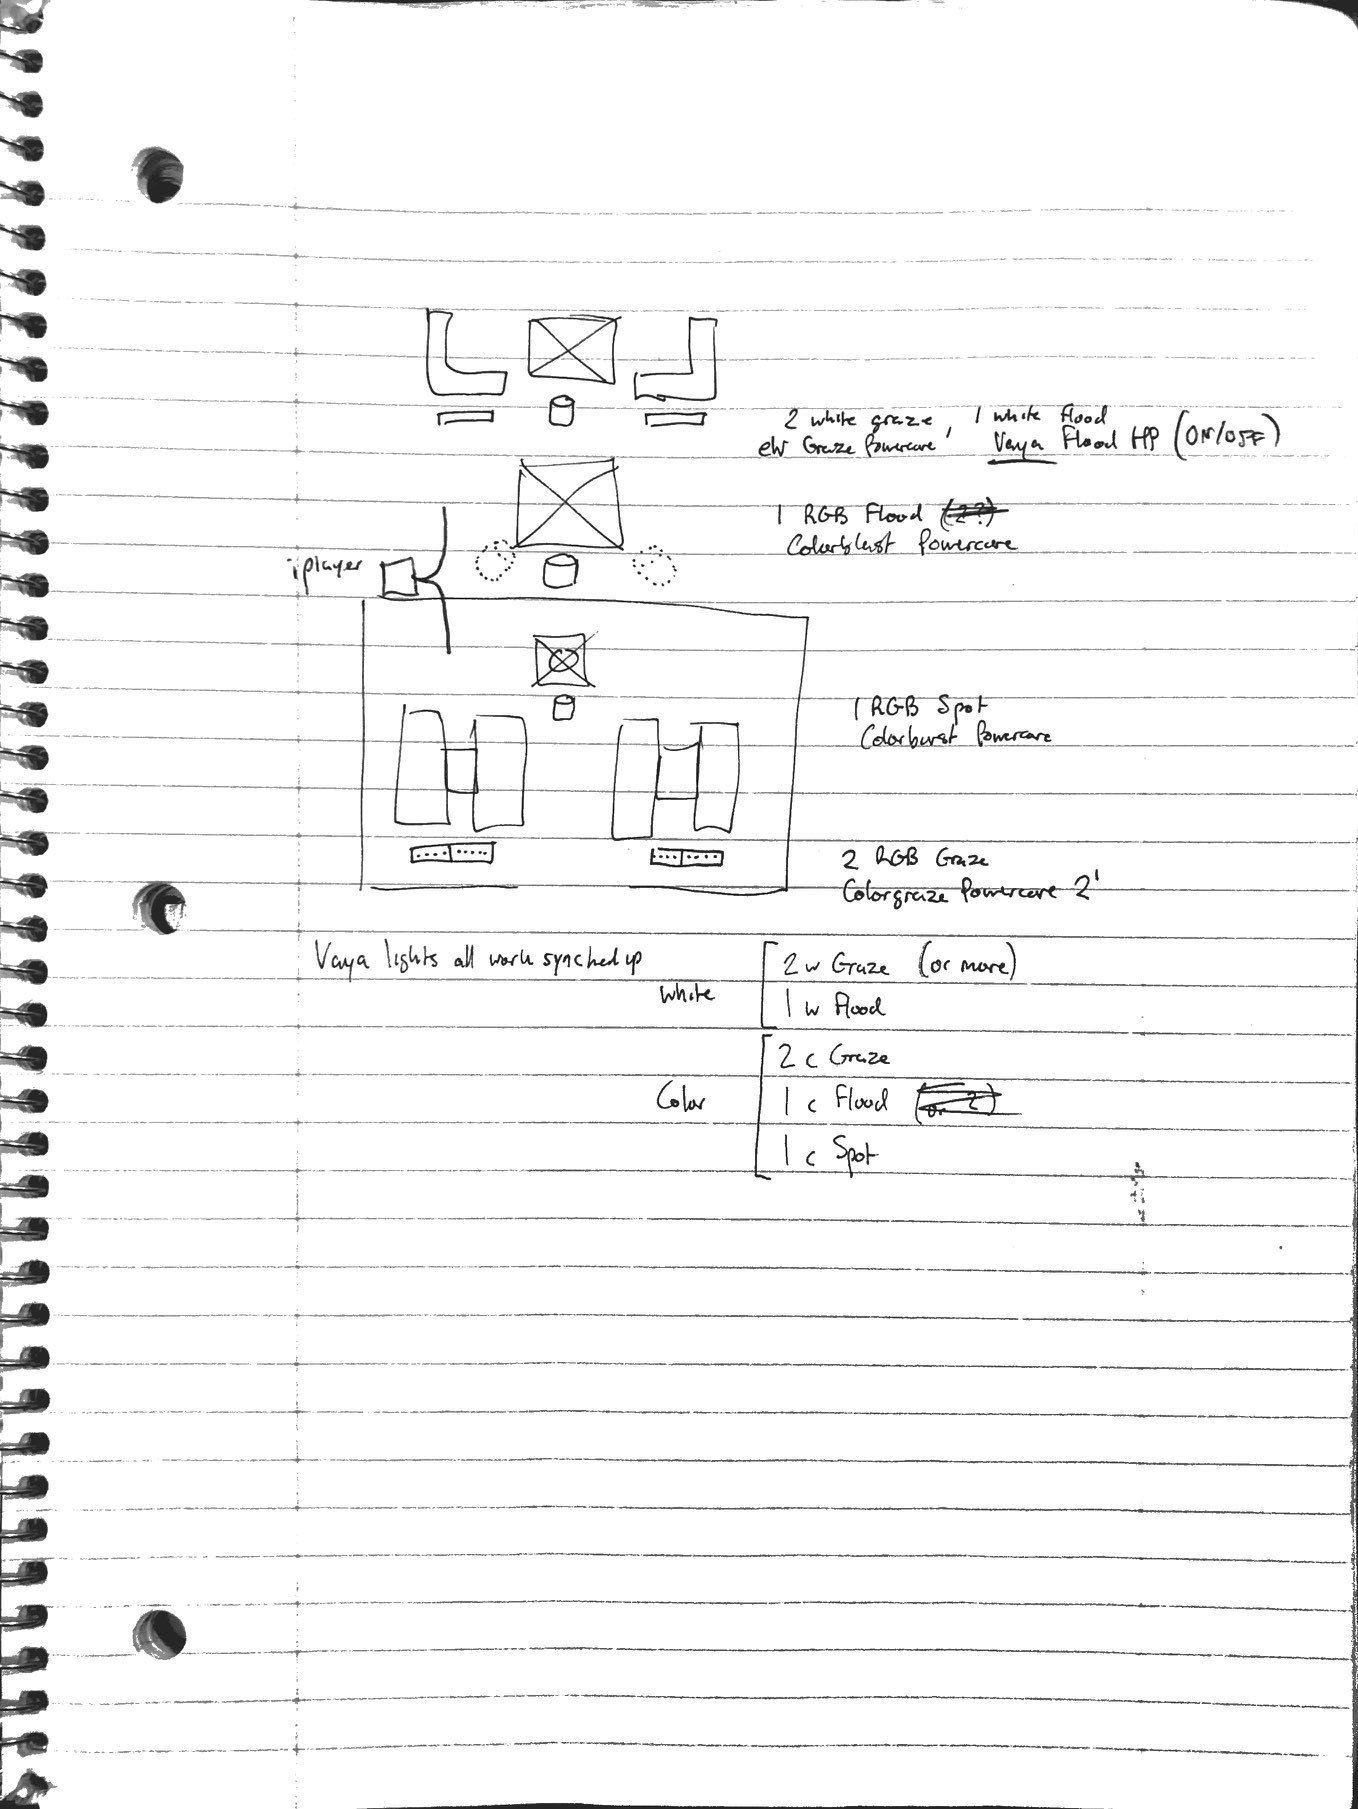 2 white graze, 1 white flood
eW Graze Powercore Vaya Flood HP (ON/OFF)
1 RGB Flood (2?)
Colorblast Powercore
iplayer
1 RGB Spot
Colorburst Powercore
2 RGB Graze
Colorgraze Powercore 2'
Vaya lights all work synched up
White
2 w Graze (or more)
1 w Flood
Color
2 c Graze
1 c Flood (or 2)
1 c Spot